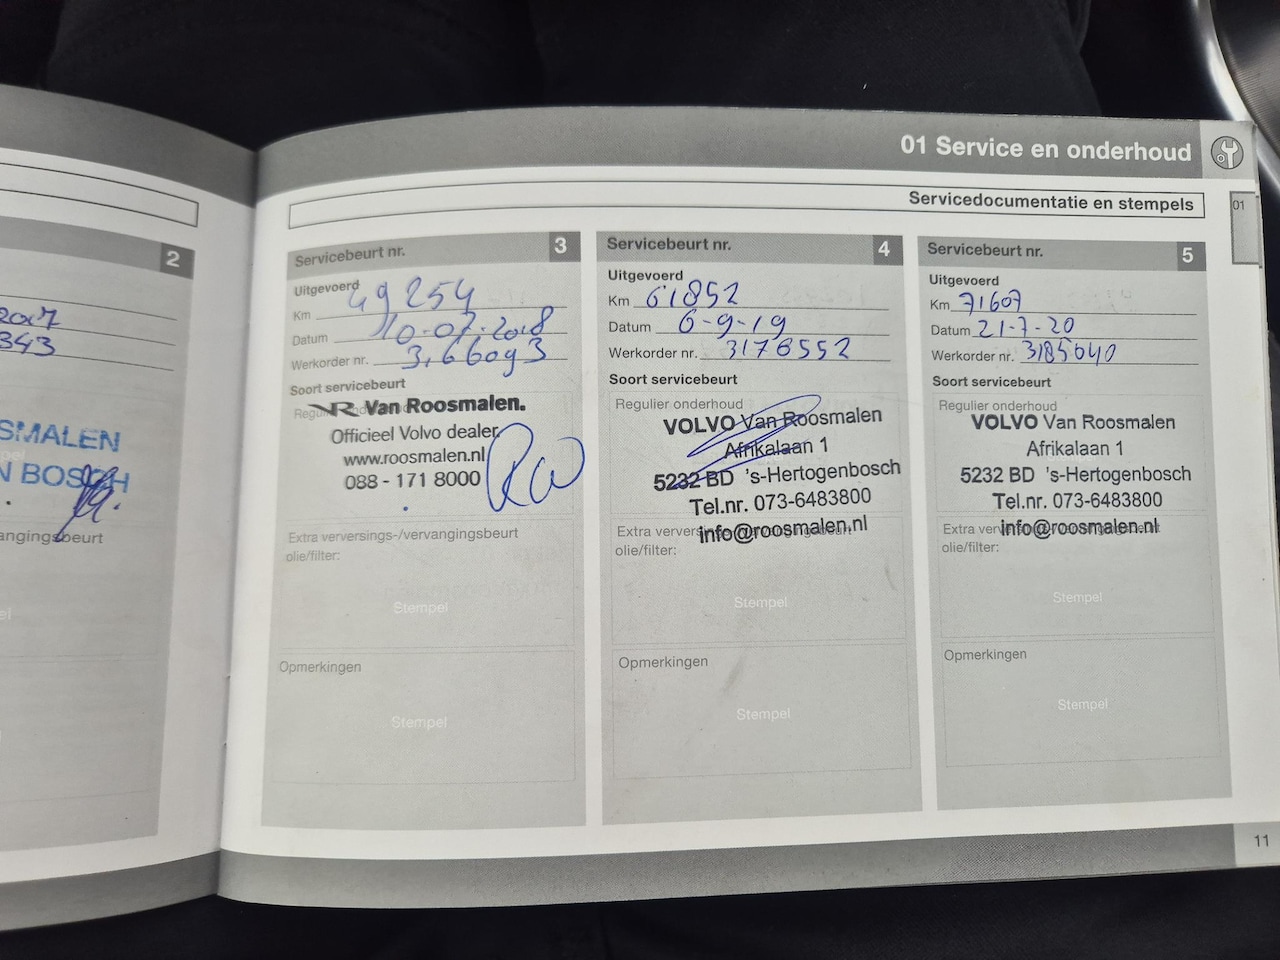 2
2017
343
SMALEN
N BOSCH
angingsbeurt
01 Service en onderhoud
01
Servicedocumentatie en stempels
Servicebeurt nr. 3
Uitgevoerd
Km 49254
Datum 10-07-2018
Werkorder nr. 3,66093
Soort servicebeurt
Van Roosmalen.
Officieel Volvo dealer
www.roosmalen.nl
088 - 171 8000
Extra verversings-/vervangingsbeurt
olie/filter:
Stempel
Opmerkingen
Stempel
Servicebeurt nr. 4
Uitgevoerd
Km 61852
Datum 6-9-19
Werkorder nr. 3176552
Soort servicebeurt
Regulier onderhoud
VOLVO Van Roosmalen
Afrikalaan 1
5232 BD 's-Hertogenbosch
Tel.nr. 073-6483800
info@roosmalen.nl
Extra
olie/filter:
Stempel
Opmerkingen
Stempel
Servicebeurt nr. 5
Uitgevoerd
Km 71607
Datum 21-7-20
Werkorder nr. 3185040
Soort servicebeurt
Regulier onderhoud
VOLVO Van Roosmalen
Afrikalaan 1
5232 BD 's-Hertogenbosch
Tel.nr. 073-6483800
info@roosmalen.nl
Extra
olie/filter:
Stempel
Opmerkingen
Stempel
11